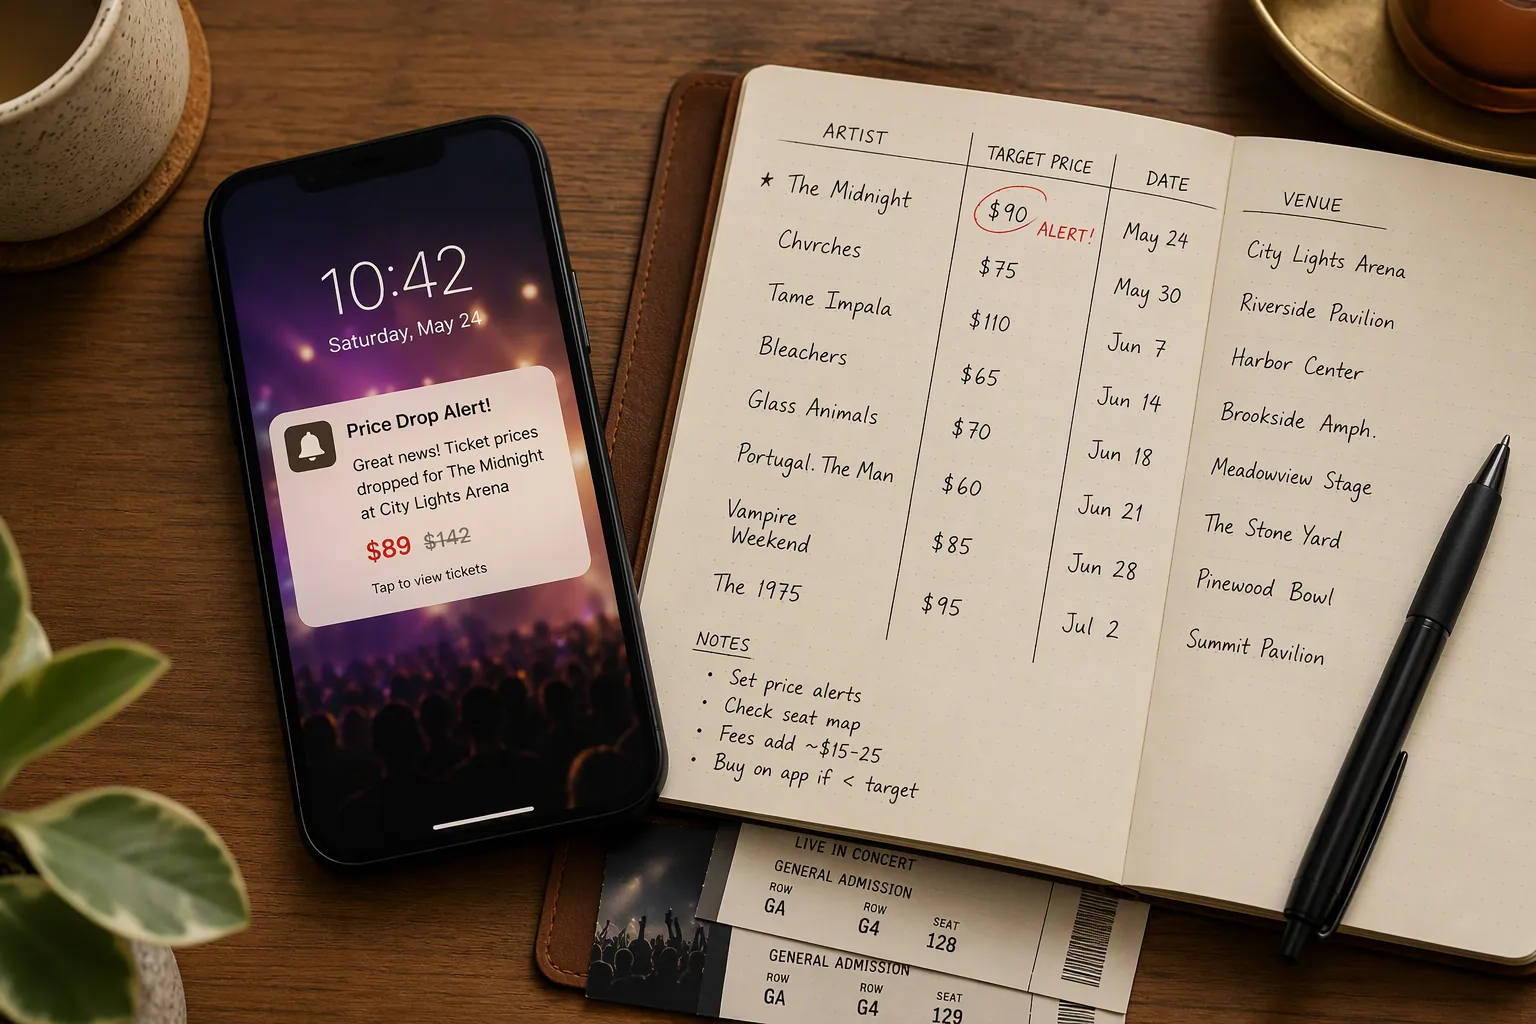 10:42
Saturday, May 24
Price Drop Alert!
Great news! Ticket prices
dropped for The Midnight
at City Lights Arena
$89 $142
Tap to view tickets
ARTIST TARGET PRICE DATE VENUE
★ The Midnight $90 ALERT! May 24 City Lights Arena
Chvrches $75 May 30 Riverside Pavilion
Tame Impala $110 Jun 7 Harbor Center
Bleachers $65 Jun 14 Brookside Amph.
Glass Animals $70 Jun 18 Meadowview Stage
Portugal. The Man $60 Jun 21 The Stone Yard
Vampire
Weekend $85 Jun 28 Pinewood Bowl
The 1975 $95 Jul 2 Summit Pavilion
NOTES
• Set price alerts
• Check seat map
• Fees add ~$15-25
• Buy on app if < target
LIVE IN CONCERT
GENERAL ADMISSION
ROW ROW SEAT
GA G4 128
GENERAL ADMISSION
ROW ROW SEAT
GA G4 129